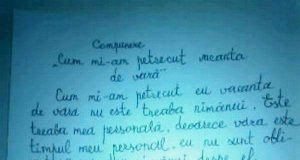 Compunere
„Cum mi-am petrecut vacanta
de vară"
Cum mi-am petrecut eu vacanta
de vara nu este treaba nimănui. Este
treaba mea personală, deoarece vara este
timpul meu personal, eu nu sunt obli-
despre el